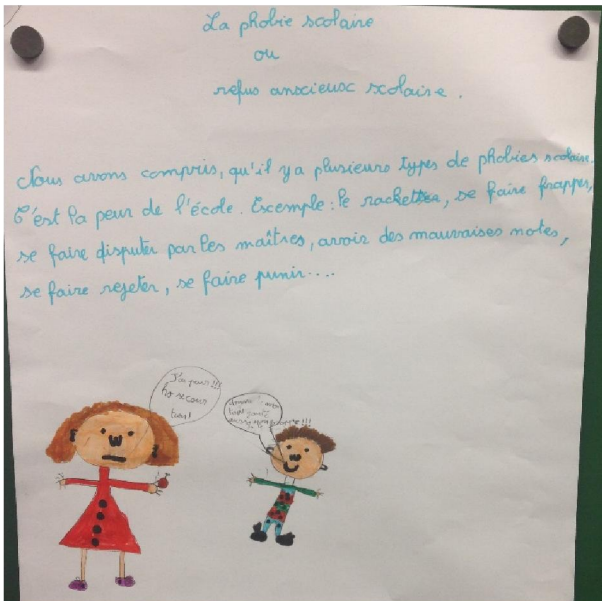 La phobie scolaire
ou
refus anscieux scolaire.
Nous avons compris, qu'il y a plusieurs types de phobies scolaire.
C'est la peur de l'école. Excemple : le racketter, se faire frapper,
se faire disputer par les maîtres, avoir des mauvaises notes,
se faire rejeter, se faire punir....
J'ai peur !!!